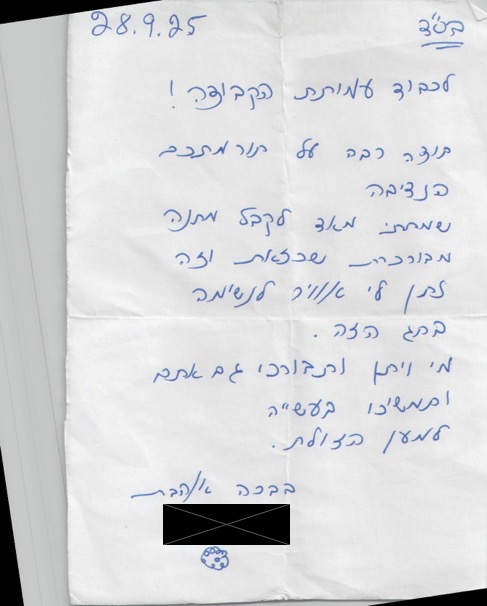 בס"ד
28.9.25
לכבוד עמותת הקבוצה!
תודה רבה על תורמתכם
הנדיבה
שמחתי מאד לקבל מתנה
מבורכת שכזאת וזה
נתן לי אוויר לנשימה
בחג הזה.
מי ויתן ותבורכי גם אתם
ותמשיכו בעשייה
למען הזולת.
בברכה אוהבת